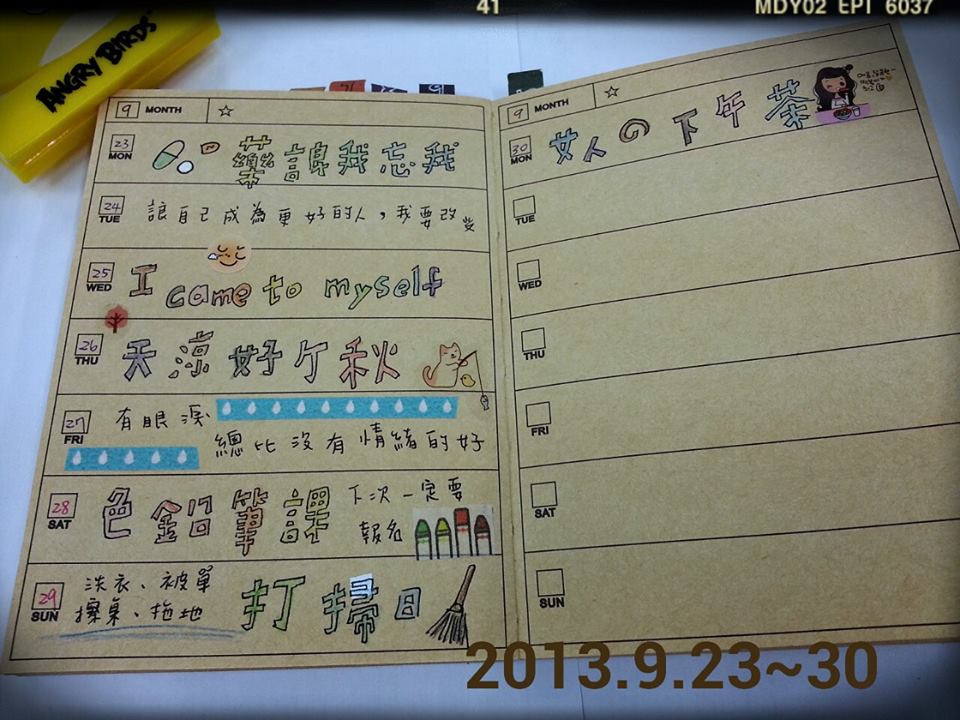 41
MDY02 EPT 6037
ANGRY BIRDS
9 MONTH
23 MON 藥讓我忘我
24 TUE 讓自己成為更好的人,我要改變
25 WED I came to myself
26 THU 天涼好个秋
27 FRI 有眼淚
總比沒有情緒的好
28 SAT 色鉛筆課 下次一定要
報名
29 SUN 洗衣、被單
擦桌、拖地
打掃日
9 MONTH
30 MON 女人の下午茶
TUE
WED
THU
FRI
SAT
SUN
2013.9.23~30